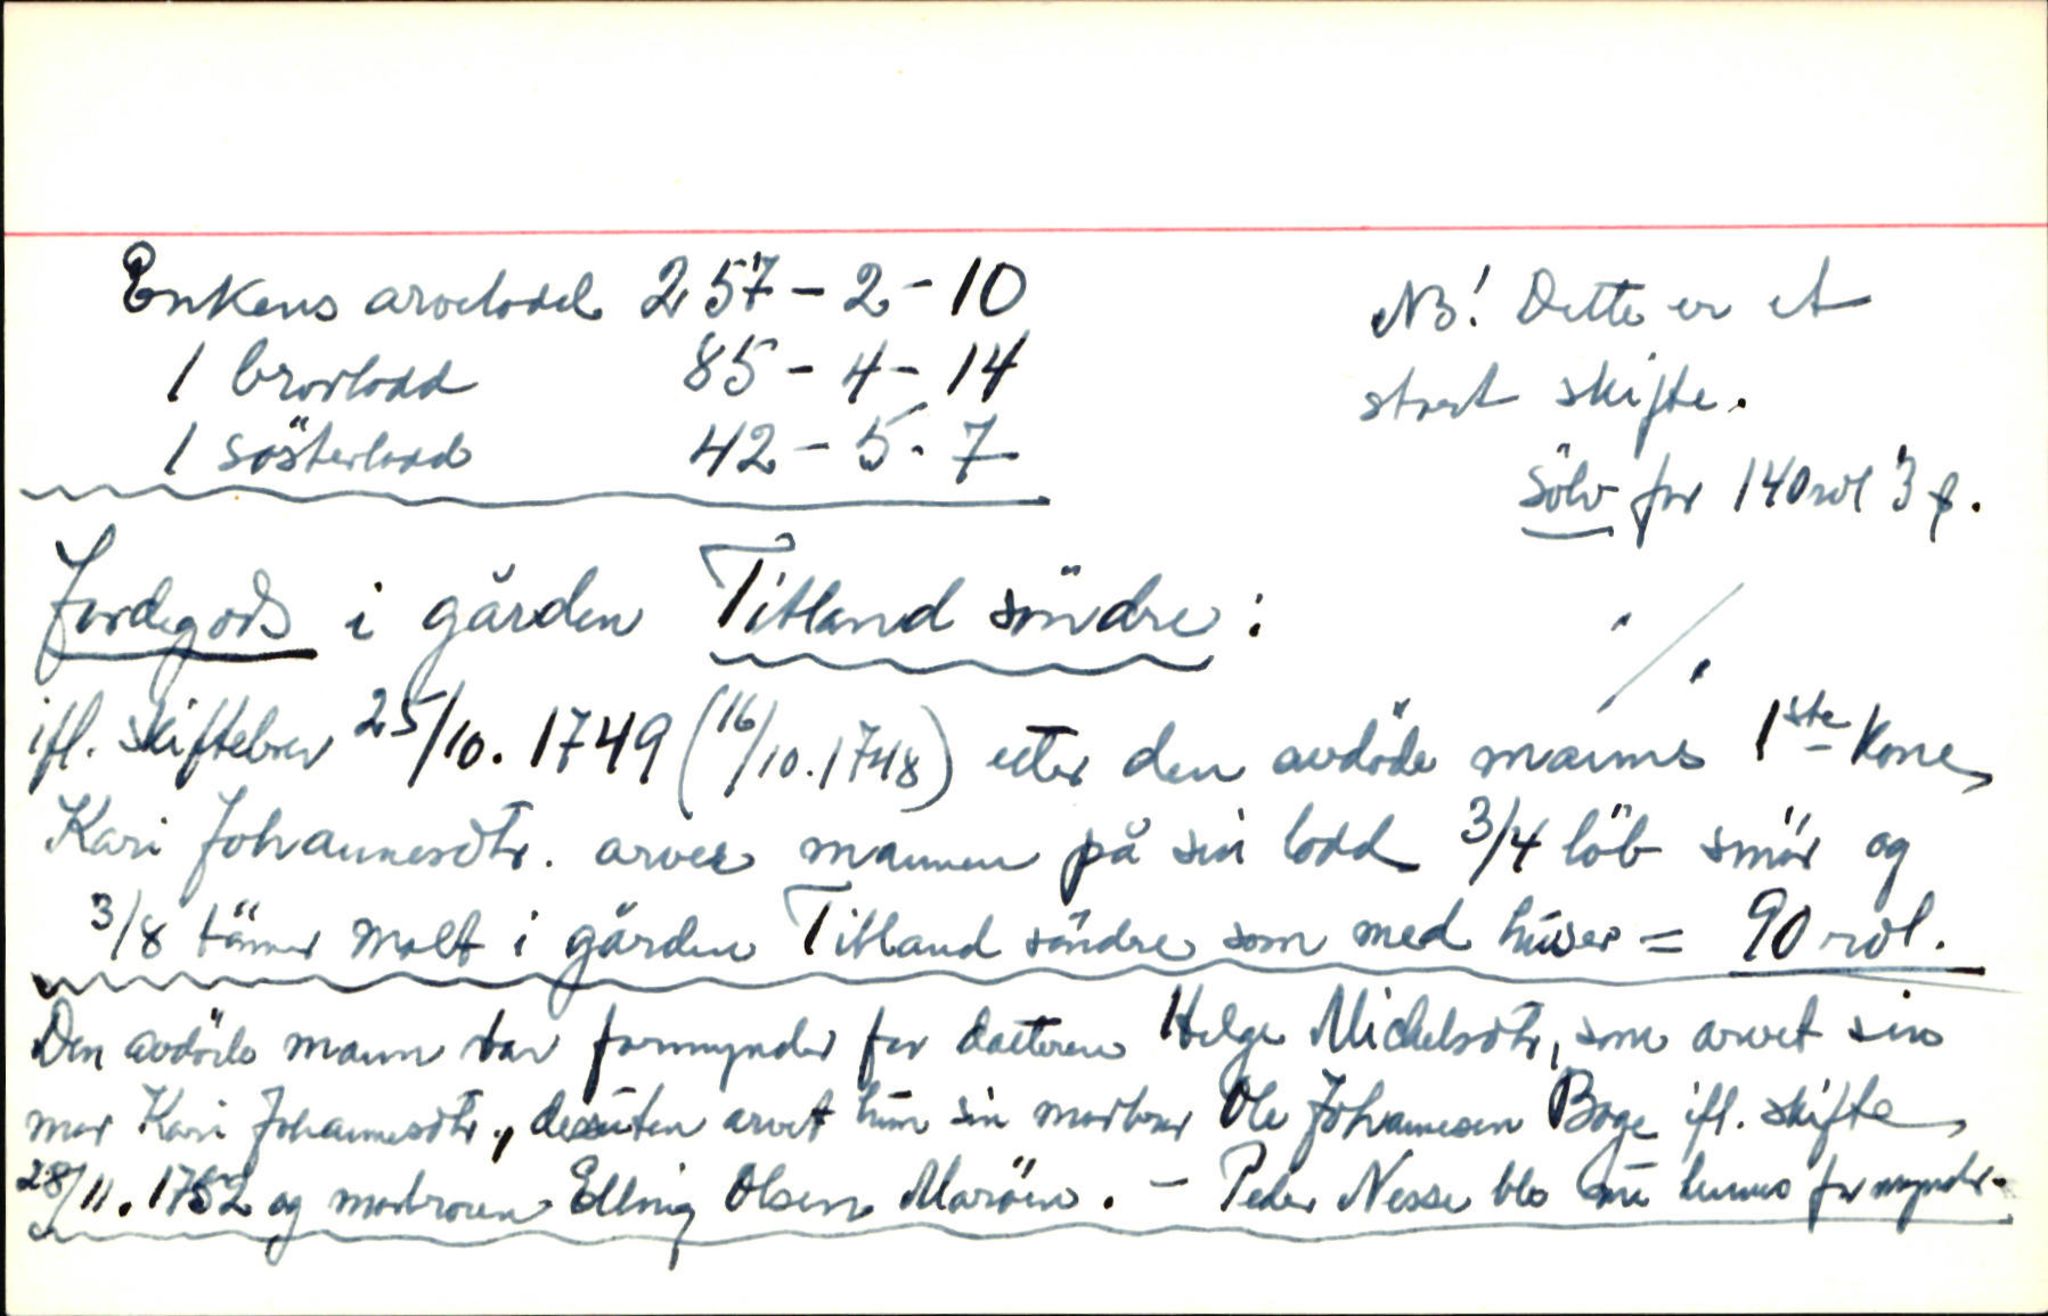 Enkens arvelodd 257 - 2 - 10
1 brorlodd 85 - 4 - 14
1 sösterlodd 42 - 5 - 7
NB! Dette er et
stort skifte.
Sölv for 140 rdl 3 f.
Jordegods i gården Titland söndre:
ifl. skiftebrev 25/10. 1749 (16/10. 1748) etter den avdöde manns 1ste kone,
Kari Johannesdtr. arver mannen på sin lodd 3/4 löb smör og
3/8 tönner malt i gården Titland söndre som med huser = 90 rdl.
Den avdöde mann var formynder for datteren Helge Michelsdtr, som arvet sin
mor Kari Johannesdtr., dessuten arvet hun sin morbror Ole Johannesen Boge ifl. skifte
28/11. 1752 og morbroren Elling Olsen Maröen. - Peder Nesse ble nu hennes formynder.